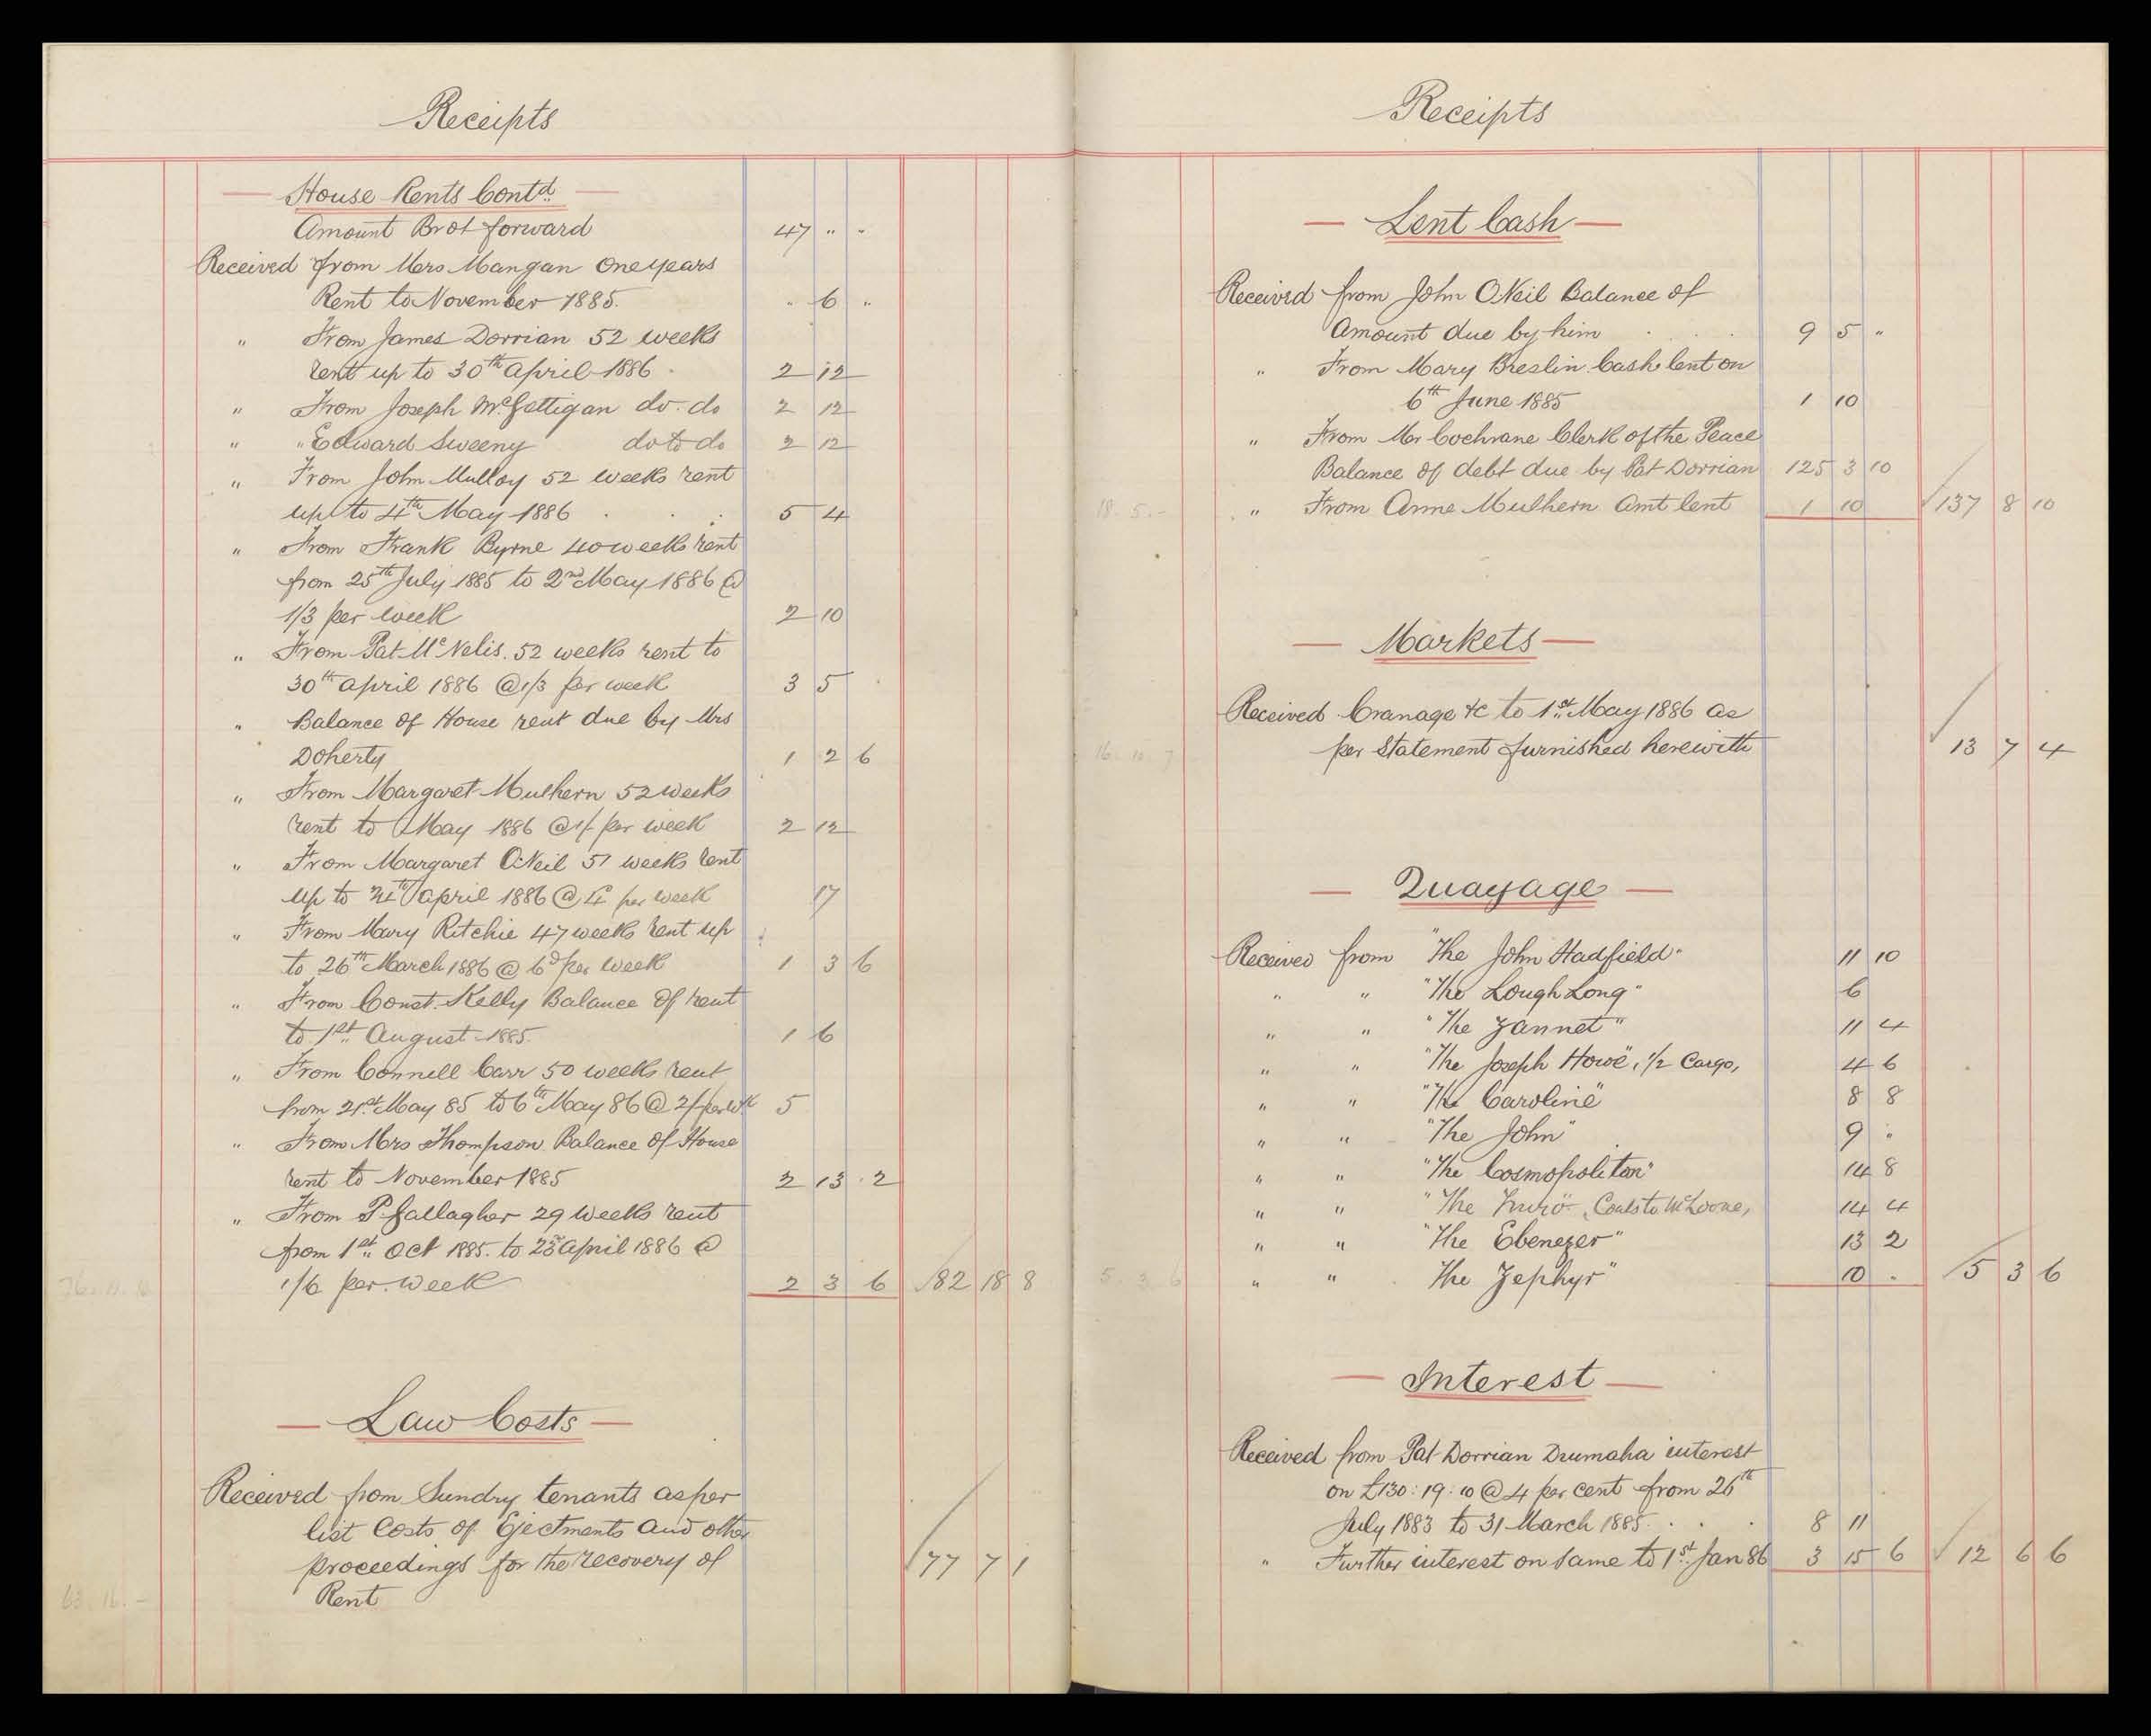 Receipts
House Rents Contd.
Amount Brot forward 47 " "
Received from Mrs Mangan One years
Rent to November 1885. " 6 "
" From James Dorrian 52 weeks
rent up to 30th April 1886 2 12
" From Joseph McGettigan do. do 2 12
" " Edward Sweeny do to do 2 12
" From John Mulloy 52 weeks rent
up to 4th May 1886 5 4
" From Frank Byrne 40 weeks rent
from 25th July 1885 to 2nd May 1886 @
1/3 per week 2 10
" From Pat McNelis. 52 weeks rent to
30th April 1886 @ 1/3 per week 3 5
" Balance of House rent due by Mrs
Doherty 1 2 6
" From Margaret Mulhern 52 weeks
rent to May 1886 @ 1/- per week 2 12
" From Margaret ONeil 51 weeks rent
up to April 1886 @ 4 per week 17
" From Mary Ritchie 47 weeks rent up
to 26th March 1886 @ 6d per week 1 3 6
" From Const. Kelly Balance of rent
to 1st August 1885. 1 6
" From Connell Carr 50 weeks rent
from 21st May 85 to 6th May 86 @ 2/- per wk 5
" From Mrs Thompson Balance of House
rent to November 1885 2 13 2
" From P. Gallagher 29 weeks rent
from 1st Oct 1885. to 23rd April 1886 @
1/6 per week 2 3 6 82 18 8
Law Costs
Received from Sundry tenants as per
list Costs of Ejectments and other
proceedings for the recovery of 77 7 1
Rent
63. 16. -
Receipts
Lent Cash
Received from John ONeil Balance of
Amount due by him 9 5 "
" From Mary Breslin Cash lent on
6th June 1885 1 10
" From Mr Cochrane Clerk of the Peace
Balance of debt due by Pat Dorrian 125 3 10
18. 5. - " From Anne Mulhern Amt lent 1 10 137 8 10
Markets
Received Cranage &c to 1st. May 1886 as
16. 10. 7 per Statement furnished herewith 13 7 4
Quayage
Received from "The John Hadfield" 11 10
" " "The Lough Long" 6
" " "The Zannet" 11 4
" " "The Joseph Howe", 1/2 Cargo, 4 6
" " "The Caroline" 8 8
" " "The John" 9 "
" " "The Cosmopolitan" 14 8
" " "The Truro" Coals to McLoone, 14 4
" " "The Ebenezer" 13 2
5. 3. 6 " " The Zephyr" 10 . 5 3 6
Interest
Received from Pat Dorrian Drumaha interest
on £130 : 19 : 10 @ 4 per cent from 26th
July 1883 to 31 March 1885 8 11
" Further interest on same to 1st. Jan 86 3 15 6 12 6 6